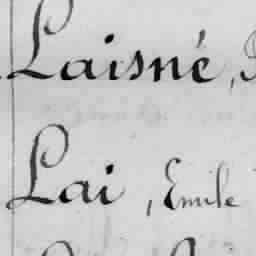 Laisné,
Lai, Emile